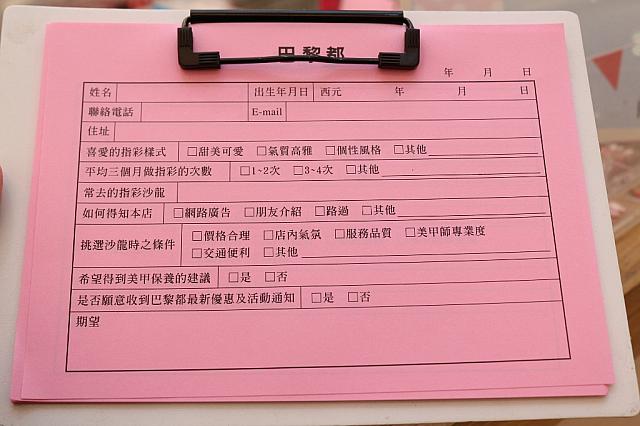 巴黎都
年 月 日
姓名 出生年月日 西元 年 月 日
聯絡電話 E-mail
住址
喜愛的指彩樣式 □甜美可愛 □氣質高雅 □個性風格 □其他
平均三個月做指彩的次數 □1~2次 □3~4次 □其他
常去的指彩沙龍
如何得知本店 □網路廣告 □朋友介紹 □路過 □其他
挑選沙龍時之條件 □價格合理 □店內氣氛 □服務品質 □美甲師專業度
□交通便利 □其他
希望得到美甲保養的建議 □是 □否
是否願意收到巴黎都最新優惠及活動通知 □是 □否
期望